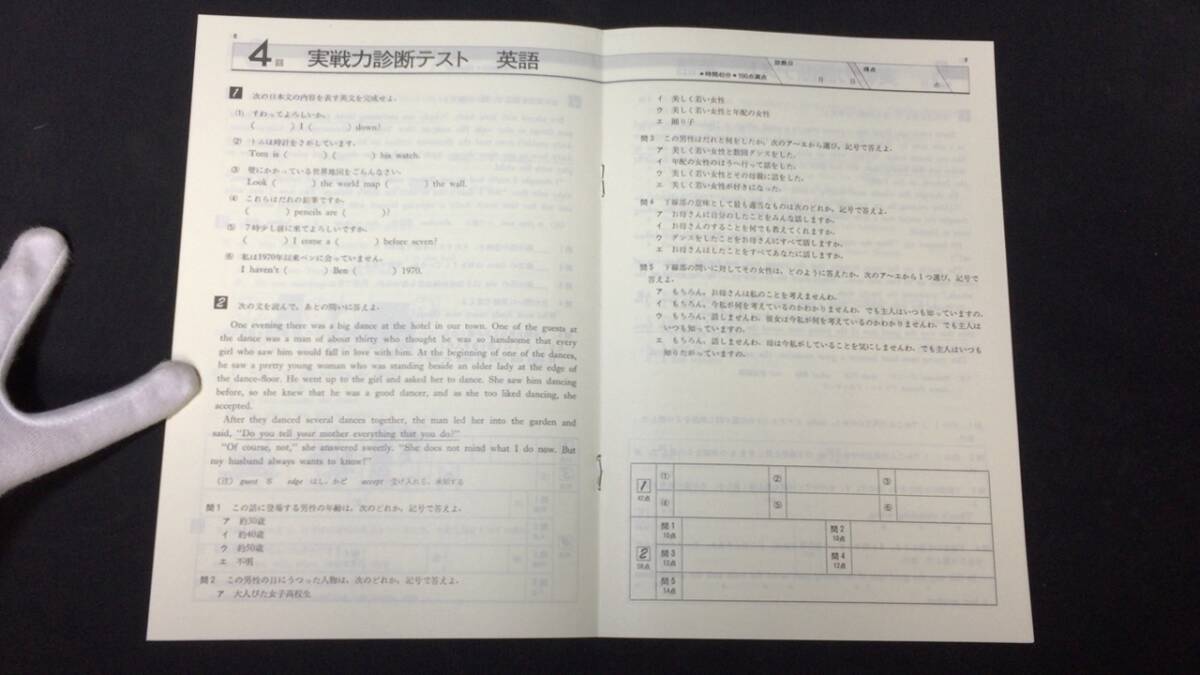 4回 実戦力診断テスト 英語
1 次の日本文の内容を表す英文を完成せよ.
① すわってよろしいか.
( ) I ( ) down?
② トムは時計をさがしています.
Tom is ( ) ( ) his watch.
③ 壁にかかっている世界地図をごらんなさい.
Look ( ) the world map ( ) the wall.
④ これらはだれの鉛筆ですか.
( ) pencils are ( )?
⑤ 7時少し前に来てよろしいですか.
( ) I come a ( ) before seven?
⑥ 私は1970年以来ベンに会っていません.
I haven't ( ) Ben ( ) 1970.
2 次の文を読んで，あとの問いに答えよ.
One evening there was a big dance at the hotel in our town. One of the guests at
the dance was a man of about thirty who thought he was so handsome that every
girl who saw him would fall in love with him. At the beginning of one of the dances,
he saw a pretty young woman who was standing beside an older lady at the edge of
the dance-floor. He went up to the girl and asked her to dance. She saw him dancing
before, so she knew that he was a good dancer, and as she too liked dancing, she
accepted.
After they danced several dances together, the man led her into the garden and
said, "Do you tell your mother everything that you do?"
"Of course, not," she answered sweetly. "She does not mind what I do now. But
my husband always wants to know!"
(注) guest 客 edge はし，かど accept 受け入れる，承知する
問1 この話に登場する男性の年齢は，次のどれか，記号で答えよ.
ア 約30歳
イ 約40歳
ウ 約50歳
エ 不明
問2 この男性の目にうつった人物は，次のどれか，記号で答えよ.
ア 大人びた女子高校生
●時間40分●100点満点
診断日 月 日
得点 点
イ 美しく若い女性
ウ 美しく若い女性と年配の女性
エ 踊り子
問3 この男性はだれと何をしたか，次のア〜エから選び，記号で答えよ.
ア 美しく若い女性と数回ダンスをした.
イ 年配の女性のほうへ行って話をした.
ウ 美しく若い女性とその母親に話をした.
エ 美しく若い女性が好きになった.
問4 下線部の意味として最も適当なものは次のどれか，記号で答えよ.
ア お母さんに自分のしたことをみんな話しますか.
イ お母さんのすることを何でも教えてくれますか.
ウ ダンスをしたことをお母さんにすべて話しますか.
エ お母さんはしたことをすべてあなたに話しますか.
問5 下線部の問いに対してその女性は，どのように答えたか，次のア〜エから1つ選び，記号で
答えよ.
ア もちろん，お母さんは私のことを考えませんわ.
イ もちろん，今私が何を考えているのかわかりません，でも主人はいつも知っていますの.
ウ もちろん，話しませんわ，彼女は今私が何を考えているのかわかりません，でも主人は
いつも知っていますの.
エ もちろん，話しませんわ，母は今私がしていることを気にしませんわ，でも主人はいつも
知りたがっていますの.
1 42点 ① ② ③
④ ⑤ ⑥
2 58点 問1 10点 問2 10点
問3 12点 問4 12点
問5 14点